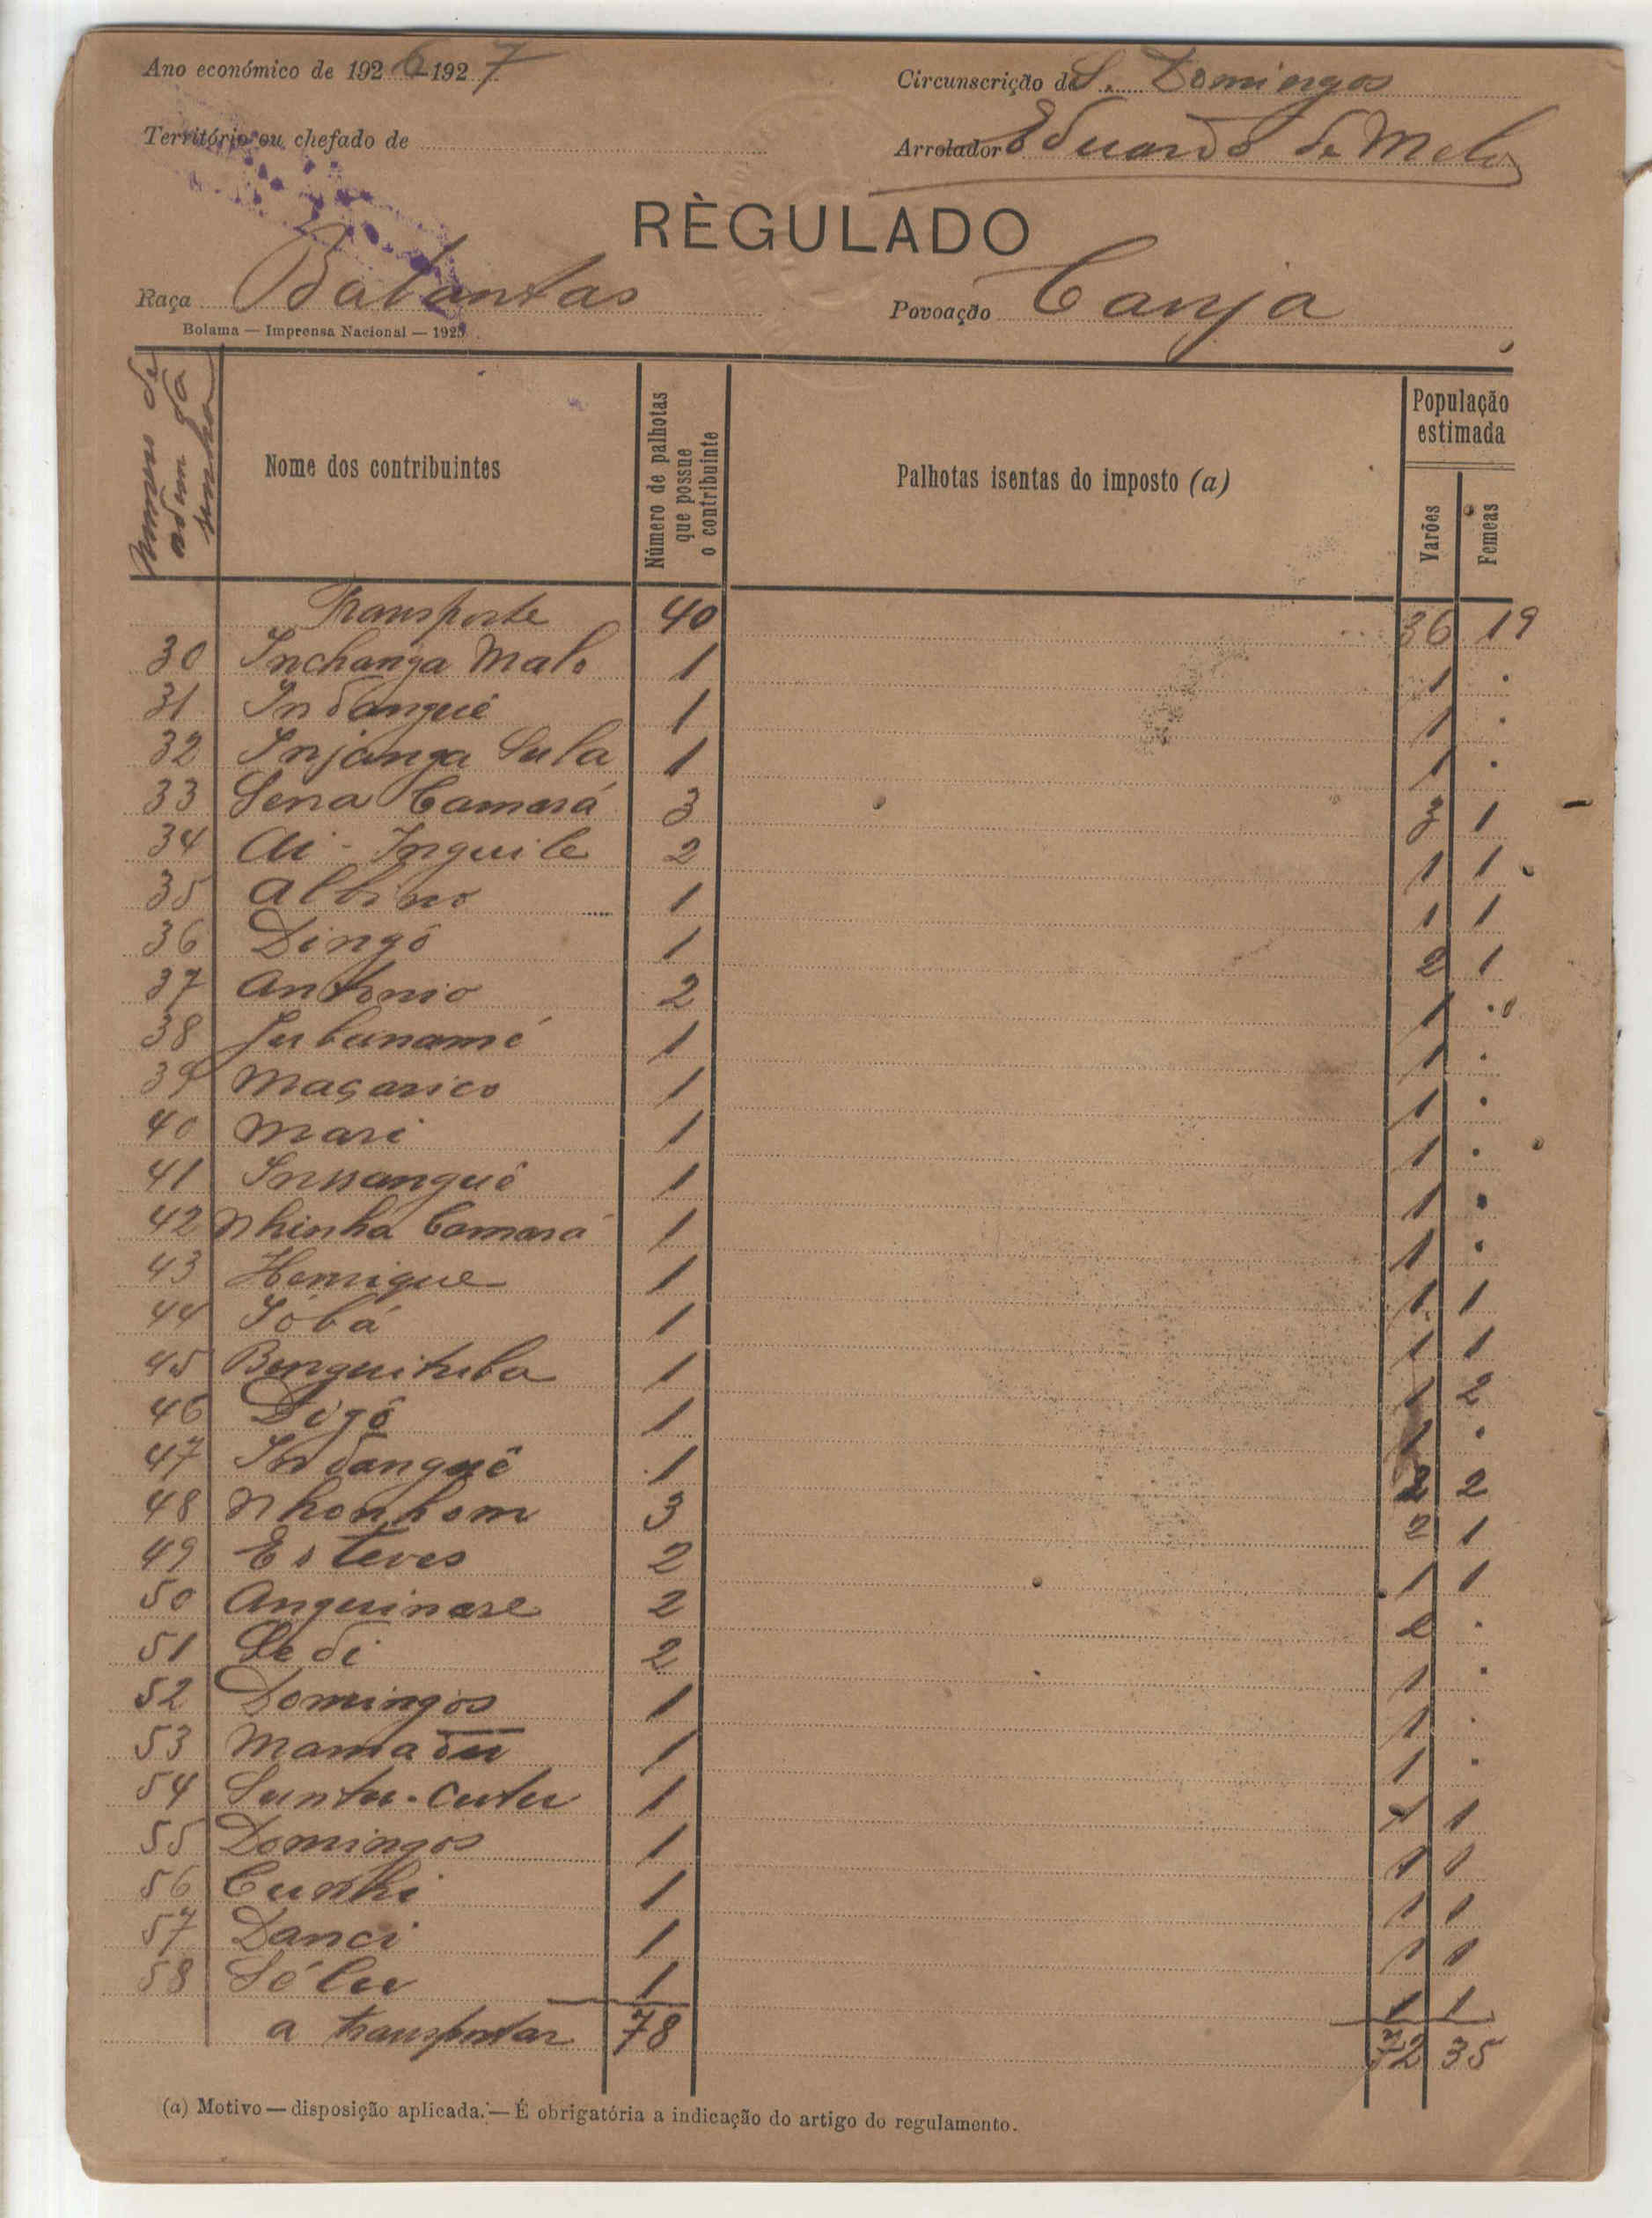 Ano económico de 1926-1927
Circunscrição de S. Domingos
Território ou chefado de
Arrolador Eduardo de Melo
RÈGULADO
Raça Balantas
Povoação Canja
Bolama — Imprensa Nacional — 1925
Nome dos contribuintes
Número de palhotas que possue o contribuinte
Palhotas isentas do imposto (a)
População estimada
Varões
Femeas
Transporte 40 36 19
30 Inchanga Malo 1 1 .
31 Indanguê 1 1 .
32 Injanga Sula 1 1 .
33 Sena Camará 3 3 1
34 Ali-Inquile 2 1 1
35 Albino 1 1 1
36 Dingô 1 2 1
37 Antonio 2 1 .
38 1 1 .
39 Maçarico 1 1 .
40 Mari 1 1 .
41 Inssanguê 1 1 .
42 Nhinha Camará 1 1 .
43 Henrique 1 1 1
44 Sóbá 1 1 1
45 Binquituba 1 1 2
46 Digô 1 1 .
47 Indanguê 1 2 2
48 Nhonhom 3 2 1
49 Esteves 2 1 1
50 Anguinare 2 2 .
51 Sedi 2 1 .
52 Domingos 1 1 .
53 Mamadu 1 1 .
54 Suntu-Cutu 1 1 1
55 Domingos 1 1 1
56 Cunhi 1 1 1
57 Danci 1 1 1
58 Sólu 1 1 1
a transportar 78 72 35
(a) Motivo — disposição aplicada. — É obrigatória a indicação do artigo do regulamento.